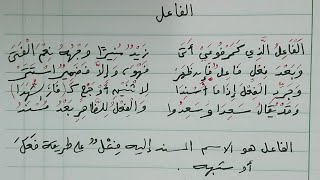 الفاعل
الْفَاعِلُ الَّذِي كَمَرْفُوعَيْ أَتَى زَيْدٌ مُنِيرًا وَجْهُهُ نِعْمَ الْفَتَى
وَبَعْدَ فِعْلٍ فَاعِلٌ فَإِنْ ظَهَرْ فَهْوَ، وَإِلَّا فَضَمِيرٌ اسْتَتَرْ
وَجَرِّدِ الْفِعْلَ إِذَا مَا أُسْنِدَا لِاثْنَيْنِ أَوْ جَمْعٍ كَـ(فَازَ الشُّهَدَا)
وَقَدْ يُقَالُ سَعِدَا وَسَعِدُوا وَالْفِعْلُ لِلظَّاهِرِ بَعْدُ مُسْنَدُ
الفاعل هو الاسم المسند إليه فِعْلٌ على طريقة فَعَلَ
أو شبهه.